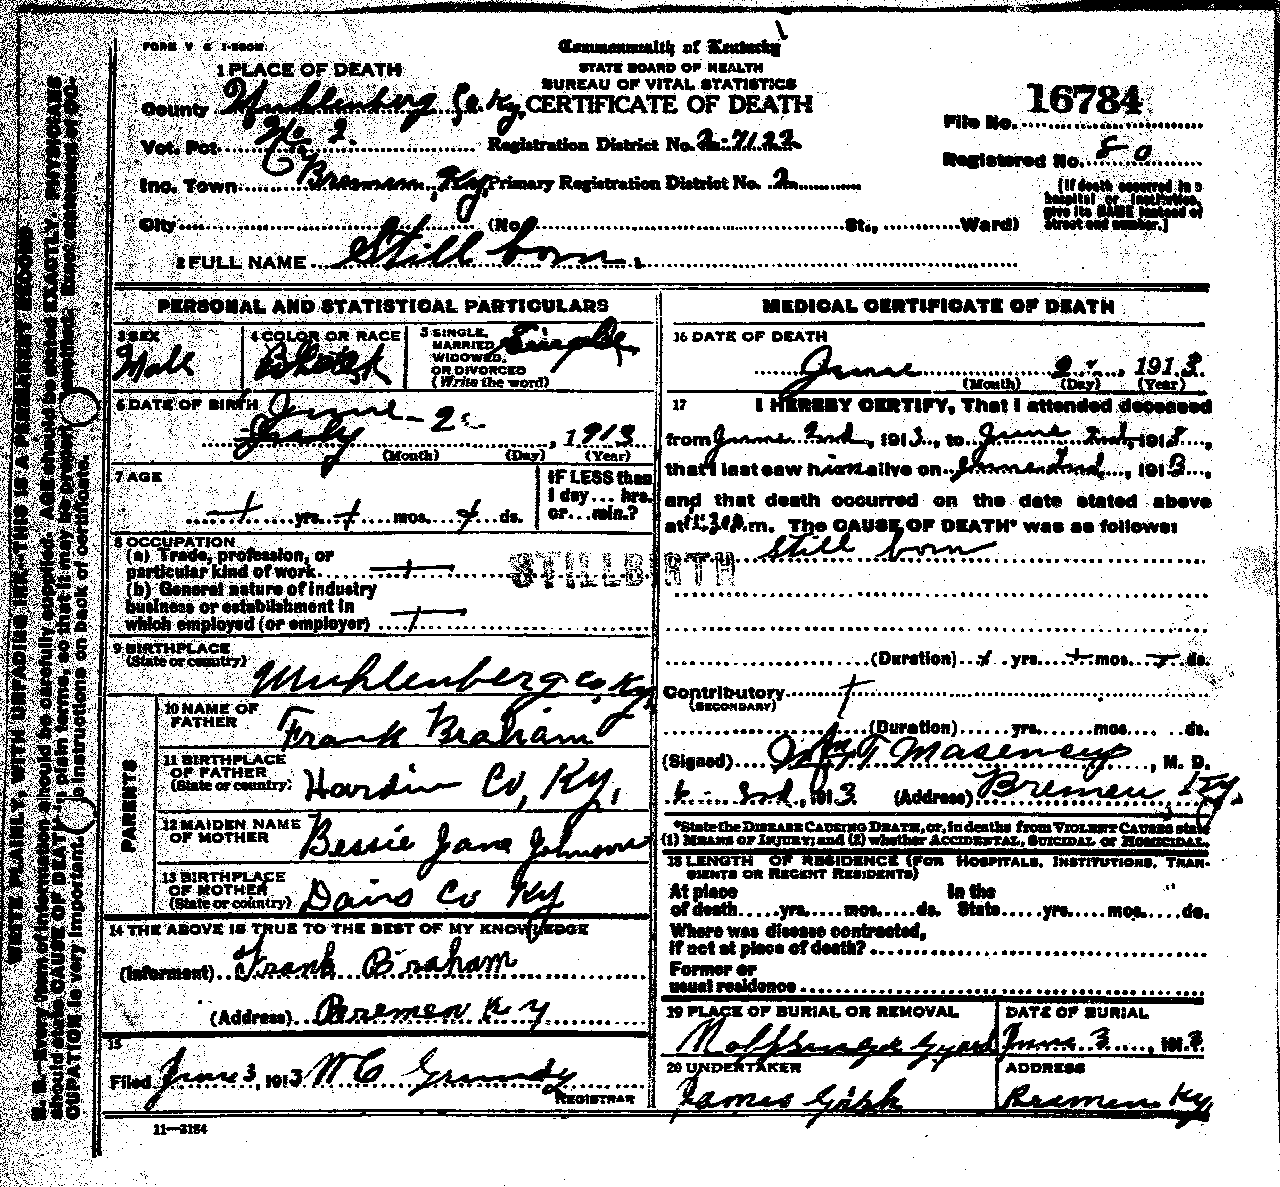 FORM V. S. 
Commonwealth of Kentucky
STATE BOARD OF HEALTH
BUREAU OF VITAL STATISTICS
CERTIFICATE OF DEATH
1 PLACE OF DEATH
County Muhlenberg Co. Ky.
Vot. Pct. No 2.
Inc. Town Bremen, Ky.
Registration District No.
Primary Registration District No. 2
File No. 16784
Registered No. 80
[If death occurred in a
hospital or institution,
give its NAME instead of
street and number.]
City (No. St., Ward)
2 FULL NAME Still born.
PERSONAL AND STATISTICAL PARTICULARS
3 SEX
Male
4 COLOR OR RACE
5 SINGLE,
MARRIED,
WIDOWED,
OR DIVORCED
(Write the word)
Single
6 DATE OF BIRTH June - 2
July , 1913
(Month) (Day) (Year)
7 AGE
yrs. mos. ds.
IF LESS than
1 day ... hrs.
or ... min.?
8 OCCUPATION
(a) Trade, profession, or
particular kind of work
(b) General nature of industry
business or establishment in
which employed (or employer)
STILLBIRTH
9 BIRTHPLACE
(State or country)
Muhlenberg Co. Ky.
PARENTS
10 NAME OF
FATHER
Frank Braham
11 BIRTHPLACE
OF FATHER
(State or country)
Hardin Co, Ky.
12 MAIDEN NAME
OF MOTHER
Bessie Jane Johnson
13 BIRTHPLACE
OF MOTHER
(State or country)
Davis Co Ky
14 THE ABOVE IS TRUE TO THE BEST OF MY KNOWLEDGE
(Informant) Frank Braham
(Address) Bremen Ky
15
Filed June 3, 1913 W C Grundy
REGISTRAR
11—3184
MEDICAL CERTIFICATE OF DEATH
16 DATE OF DEATH
June 2, 1913
(Month) (Day) (Year)
17 I HEREBY CERTIFY, That I attended deceased
from June 2nd, 1913, to June 2nd, 1913,
that I last saw him alive on June 2nd, 1913,
and that death occurred on the date stated above
at m. The CAUSE OF DEATH* was as follows:
Still born
(Duration) yrs. mos. ds.
Contributory
(SECONDARY)
(Duration) yrs. mos. ds.
(Signed) T Masencup, M. D.
2nd, 1913 (Address) Bremen Ky.
*State the DISEASE CAUSING DEATH, or, in deaths from VIOLENT CAUSES state
(1) MEANS OF INJURY; and (2) whether ACCIDENTAL, SUICIDAL or HOMICIDAL.
18 LENGTH OF RESIDENCE (FOR HOSPITALS, INSTITUTIONS, TRAN-
SIENTS OR RECENT RESIDENTS)
At place In the
of death yrs. mos. ds. State yrs. mos. ds.
Where was disease contracted,
if not at place of death?
Former or
usual residence
19 PLACE OF BURIAL OR REMOVAL
DATE OF BURIAL
June 3, 1913
20 UNDERTAKER
James Gish
ADDRESS
Bremen Ky
WRITE PLAINLY, WITH UNFADING INK—THIS IS A PERMANENT RECORD
N. B.—Every item of information should be carefully supplied. AGE should be stated EXACTLY. PHYSICIANS
should state CAUSE OF DEATH in plain terms, so that it may be properly classified. Exact statement of OC-
CUPATION is very important. See instructions on back of certificate.